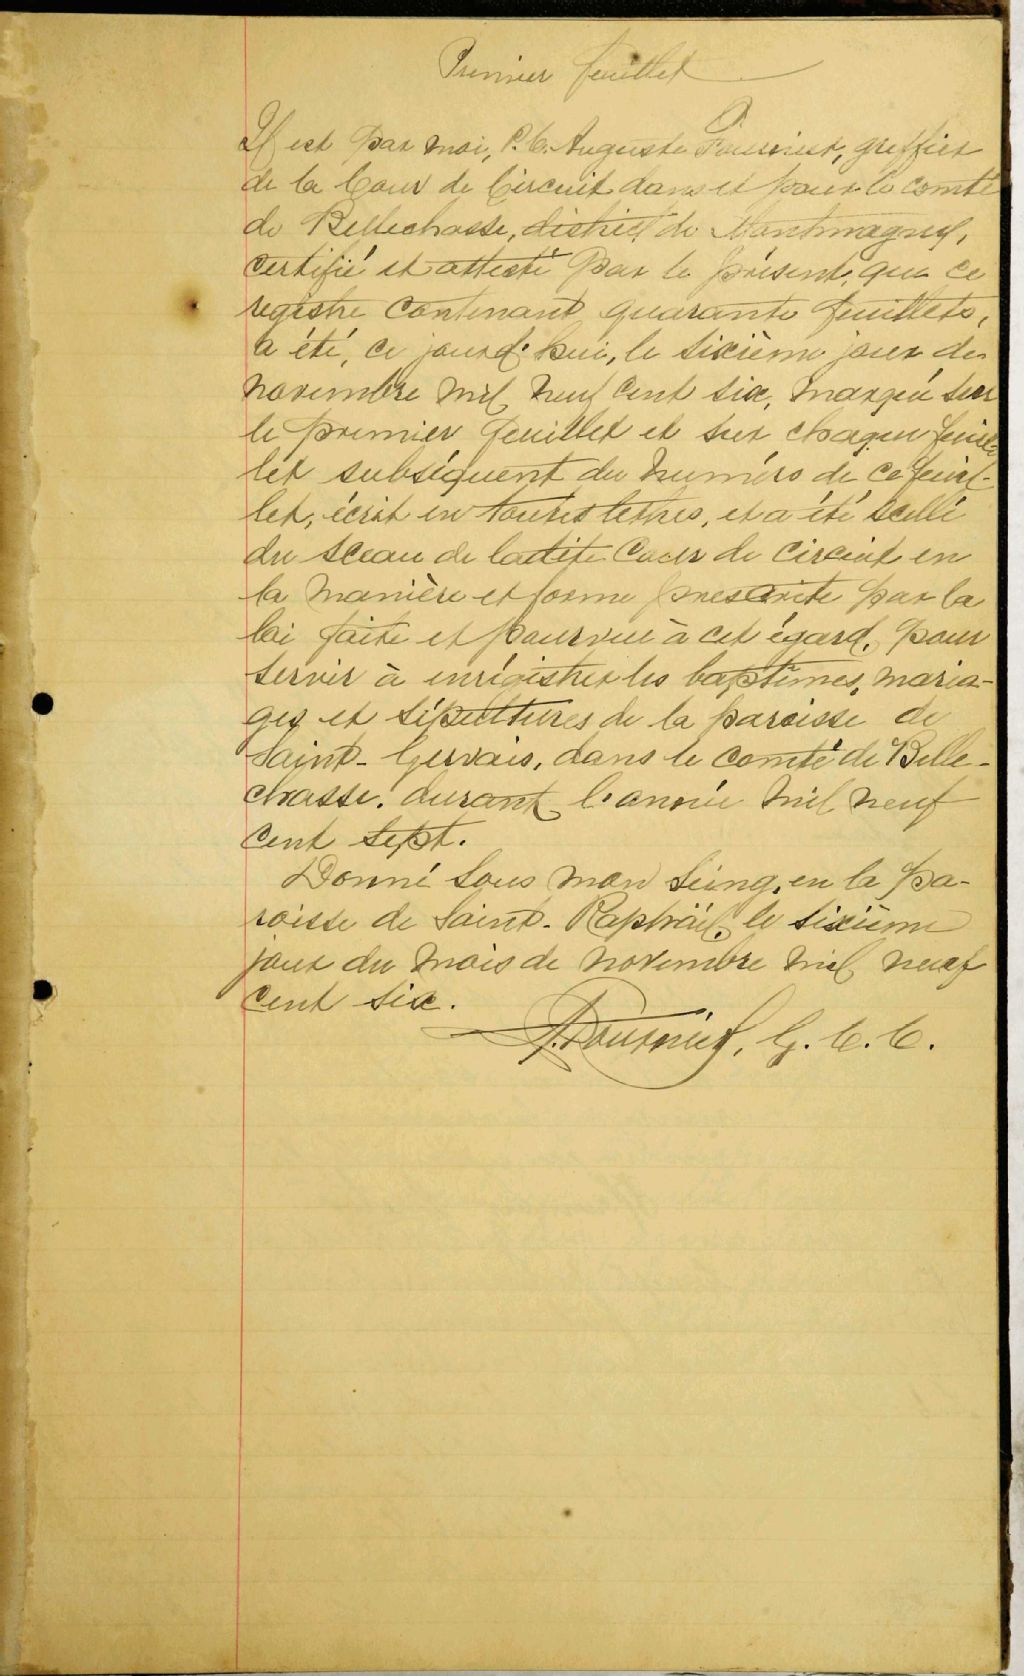 Premier feuillet
Il est par moi, P. C. Auguste Fournier, greffier
de la Cour de Circuit dans et pour le comté
de Bellechasse, district de Montmagny,
certifié et attesté par le présent, que ce
registre contenant quarante feuillets,
a été, ce jourd'hui, le sixième jour de
novembre mil neuf cent six, marqué sur
le premier feuillet et sur chaque feuil-
let subséquent du numéro de ce feuil-
let, écrit en toutes lettres, et a été scellé
du sceau de ladite Cour de circuit en
la manière et forme prescrite par la
loi faite et pourvue à cet égard, pour
servir à enrégistrer les baptêmes, maria-
ges et sépultures de la paroisse de
Saint-Gervais, dans le comté de Belle-
chasse, durant l'année mil neuf
cent sept.
Donné sous mon seing, en la pa-
roisse de Saint-Raphaël, le sixième
jour du mois de novembre mil neuf
cent six.
A. Fournier, G. C. C.